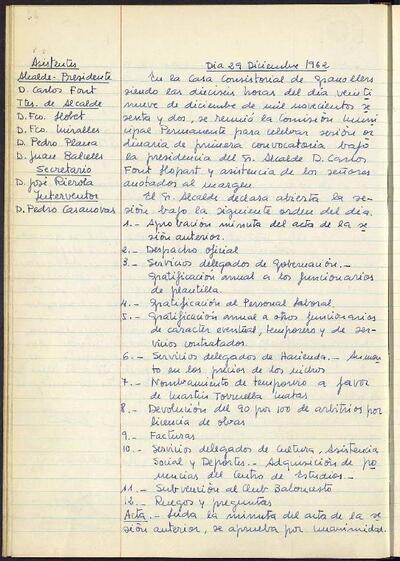 Asistentes
Alcalde-Presidente
D. Carlos Font
Ttes. de Alcalde
D. Fco. Llobet
D. Fco. Miralles
D. Pedro Plana
D. Juan Balcells
Secretario
D. José Rierola
Interventor
D. Pedro Casanovas
Dia 29 Diciembre 1962
En la Casa Consistorial de Granollers
siendo las dieciseis horas del dia veinti
nueve de diciembre de mil novecientos se
senta y dos, se reunió la Comisión Muni
cipal Permanente para celebrar sesión or
dinaria de primera convocatoria bajo
la presidencia del Sr. Alcalde D. Carlos
Font Llopart y asistencia de los señores
anotados al margen.
El Sr. Alcalde declara abierta la se
sión bajo la siguiente orden del dia.
1.- Aprobación minuta del acta de la se
sión anterior.
2.- Despacho oficial
3.- Servicios delegados de Gobernación.-
Gratificación anual a los funcionarios
de plantilla.
4.- Gratificación del Personal laboral.
5.- Gratificación anual a otros funcionarios
de caracter eventual, temporero y de ser-
vicios contratados.
6.- Servicios delegados de Hacienda.- Aumen
to en los precios de los nichos
7.- Nombramiento de temporero a favor
de Martin Torruella Matas
8.- Devolución del 90 por 100 de arbitrios por
licencia de obras
9.- Facturas
10.- Servicios delegados de Cultura, Asistencia
Social y Deportes.- Adquisición de po
nencias del Centro de Estudios.-
11.- Subvención al Club Baloncesto
12.- Ruegos y preguntas
Acta.- Leida la minuta del acta de la se
sión anterior, se aprueba por unanimidad.